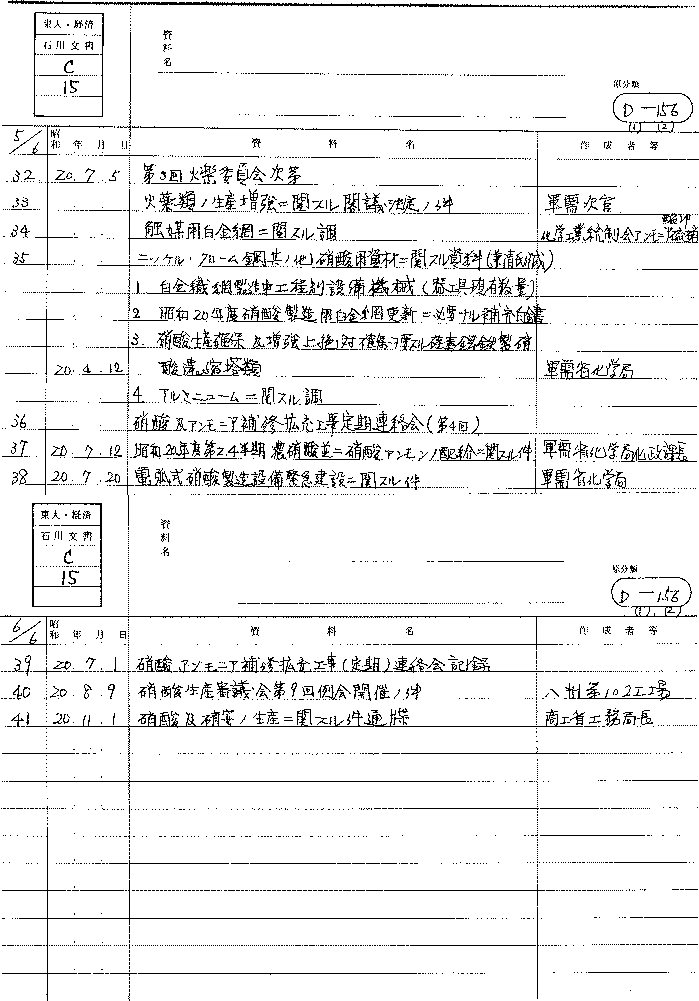 東大・経済
石川文書
C
15
資料名
原分類
D-156
(1) (2)
5/6 昭和 年 月 日 資料名 作成者等
32 20.7.5 第3回火薬委員会次第
33 火薬類ノ生産増強ニ関スル閣議決定ノ件 軍需次官
34 触媒用白金網ニ関スル調 化学工業統制会アンモニア
35 ニッケル・クローム鋼其ノ他硝酸用資材ニ関スル資料
1. 白金織網製作工程別設備機械(器具現有数量)
2. 昭和20年度硝酸製造用白金網更新ニ必要ナル補充白金
3. 硝酸生産確保及増強上絶対確保ヲ要スル硅素鋳鉄製硝
20.4.12 酸濃縮塔類 軍需省化学局
4. アルミニュームニ関スル調
36 硝酸及アンモニア補修拡充工事定期連絡会(第4回)
37 20.7.12 昭和20年度第2.4半期濃硝酸並ニ硝酸アンモンノ配給ニ関スル件 軍需省化学局化政課長
38 20.7.20 電弧式硝酸製造設備緊急建設ニ関スル件 軍需省化学局
東大・経済
石川文書
C
15
資料名
原分類
D-156
(1) (2)
6/6 昭和 年 月 日 資料名 作成者等
39 20.7.1 硝酸アンモニア補修拡充工事(定期)連絡会記録
40 20.8.9 硝酸生産審議会第9回例会開催ノ件 八州第102工場
41 20.11.1 硝酸及硝安ノ生産ニ関スル件通牒 商工省工務局長